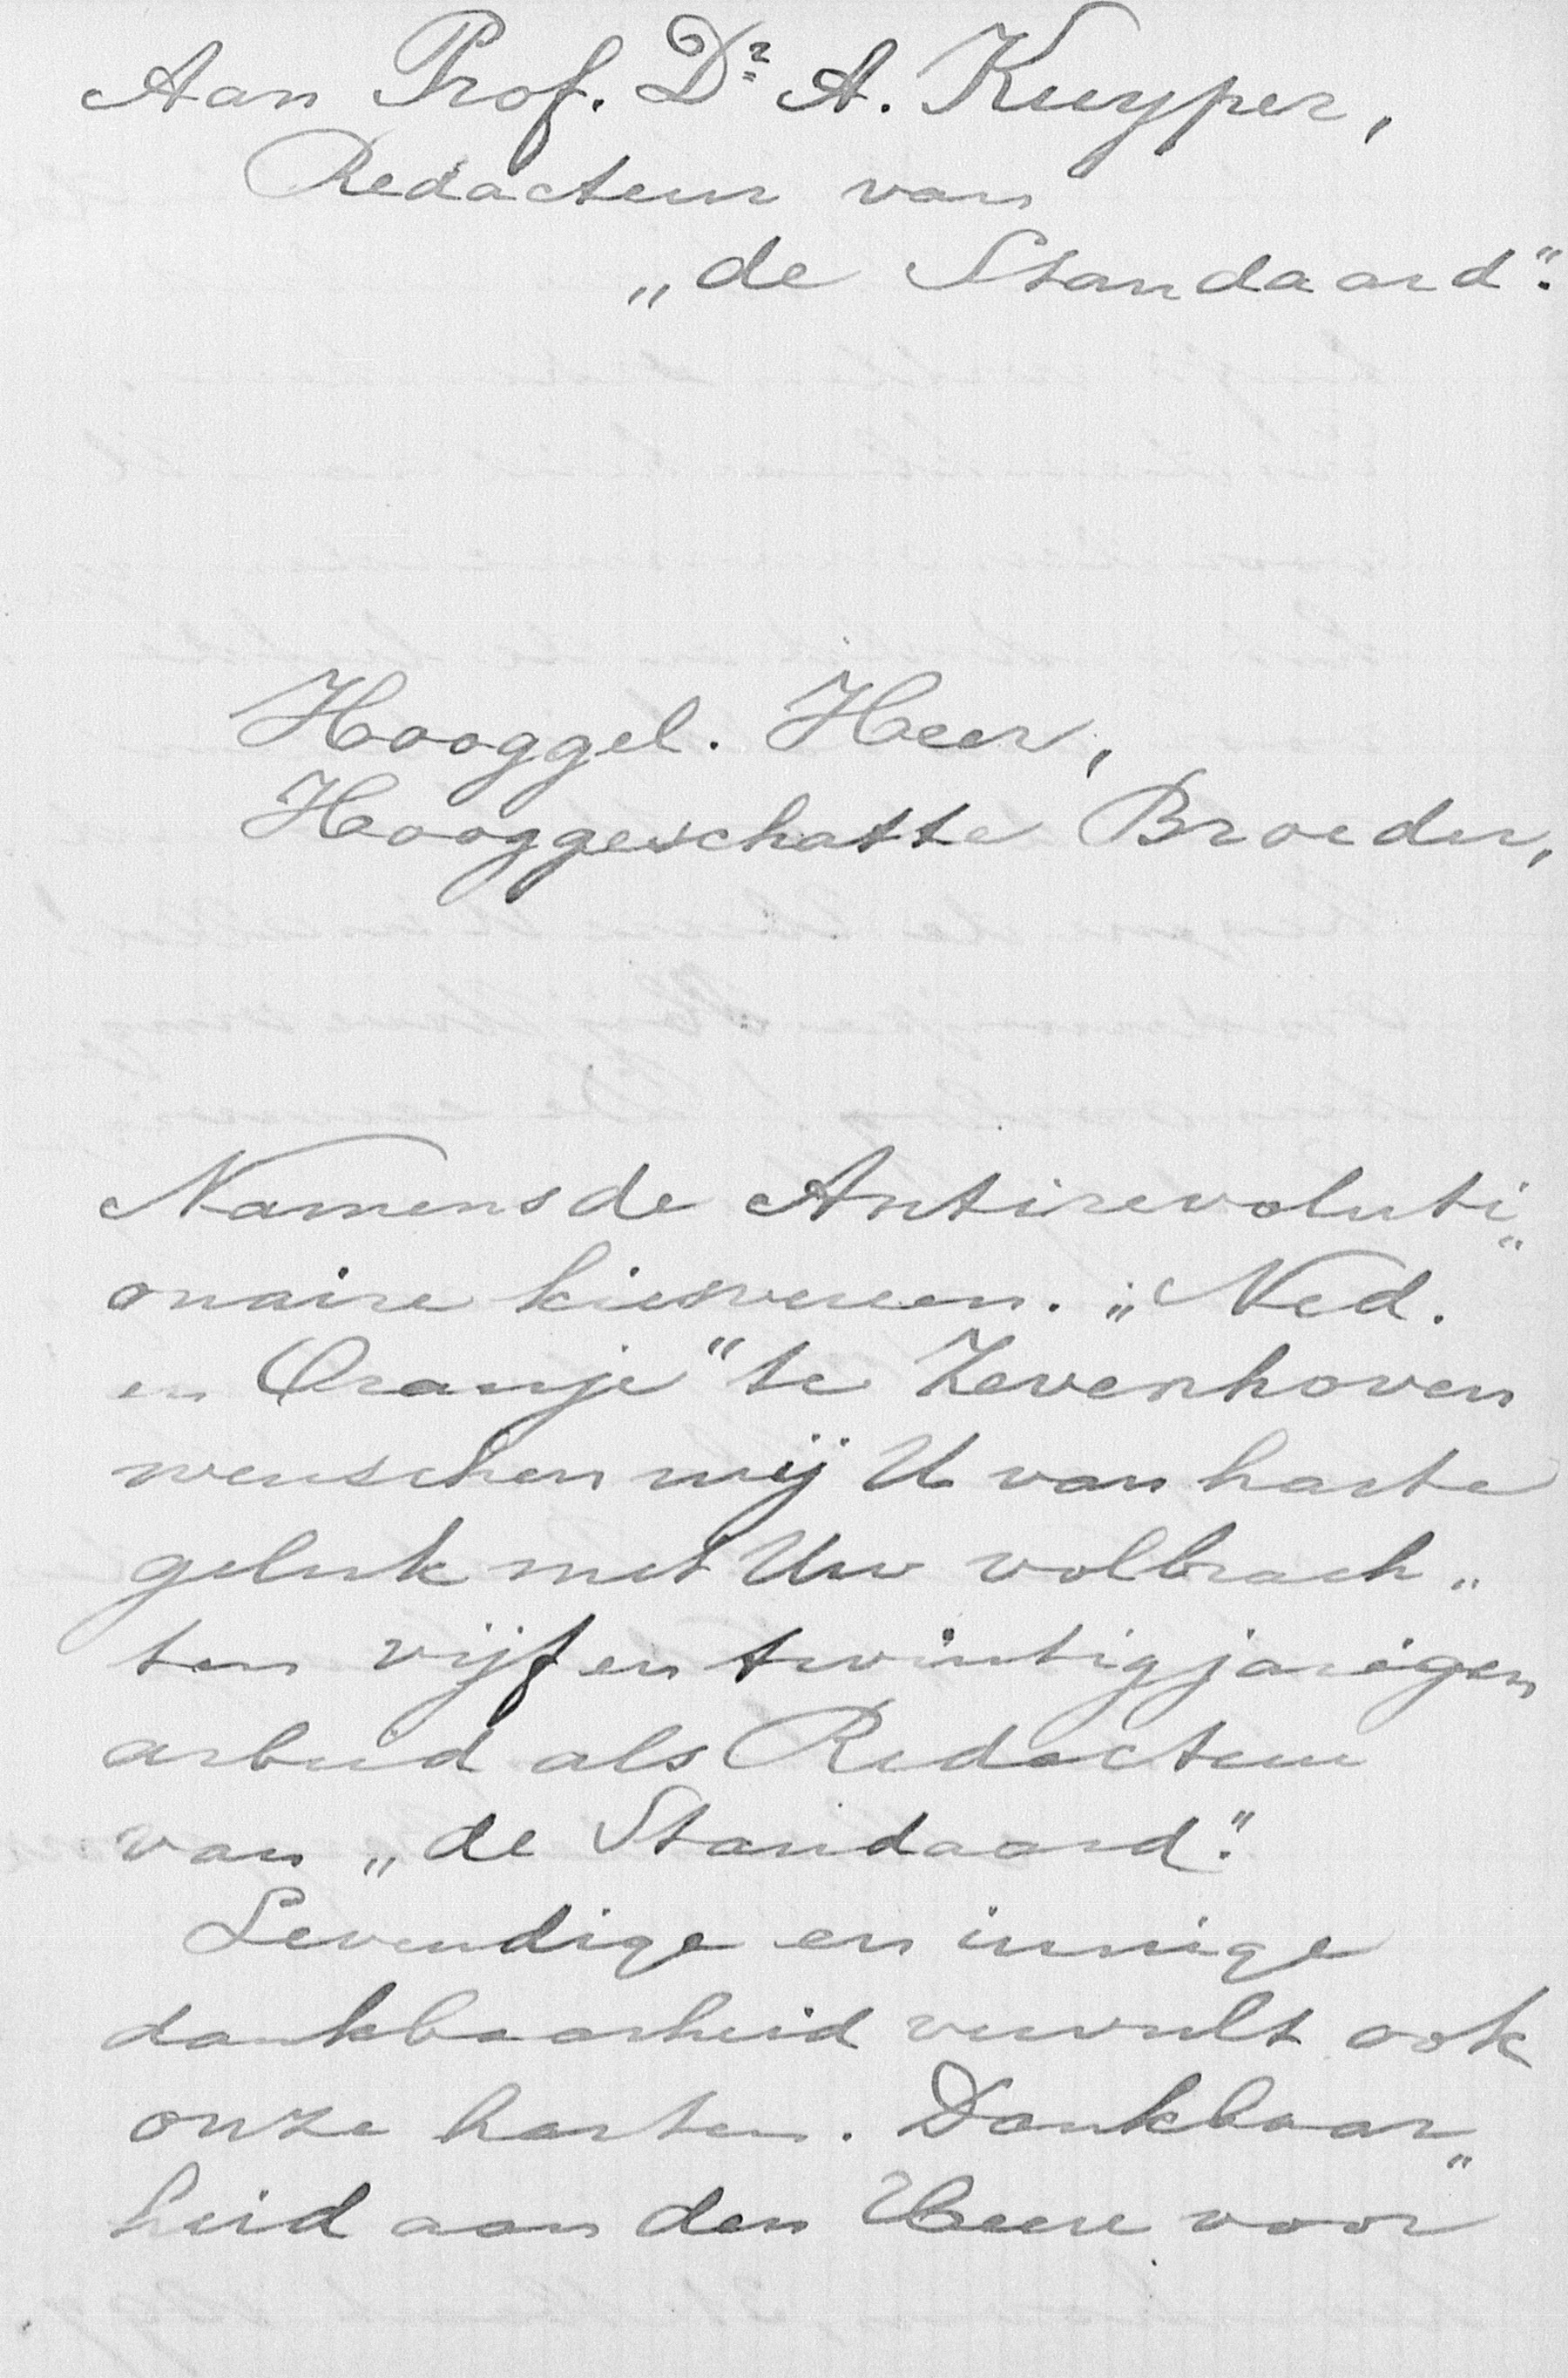 Aan Prof. Dr A. Kuyper,
Redacteur van
„de Standaard".
Hooggel. Heer,
Hooggeschatte Broeder,
Namens de Antirevoluti„
onaire kiesvereen. „Ned.
en Oranje" te Zevenhoven
wenschen wij U van harte
geluk met Uw volbrach„
ten vijf en twintigjarigen
arbeid als Redacteur
van „de Standaard".
Levendige en innige
dankbaarheid vervult ook
onze harten. Dankbaar„
heid aan den Heere voor